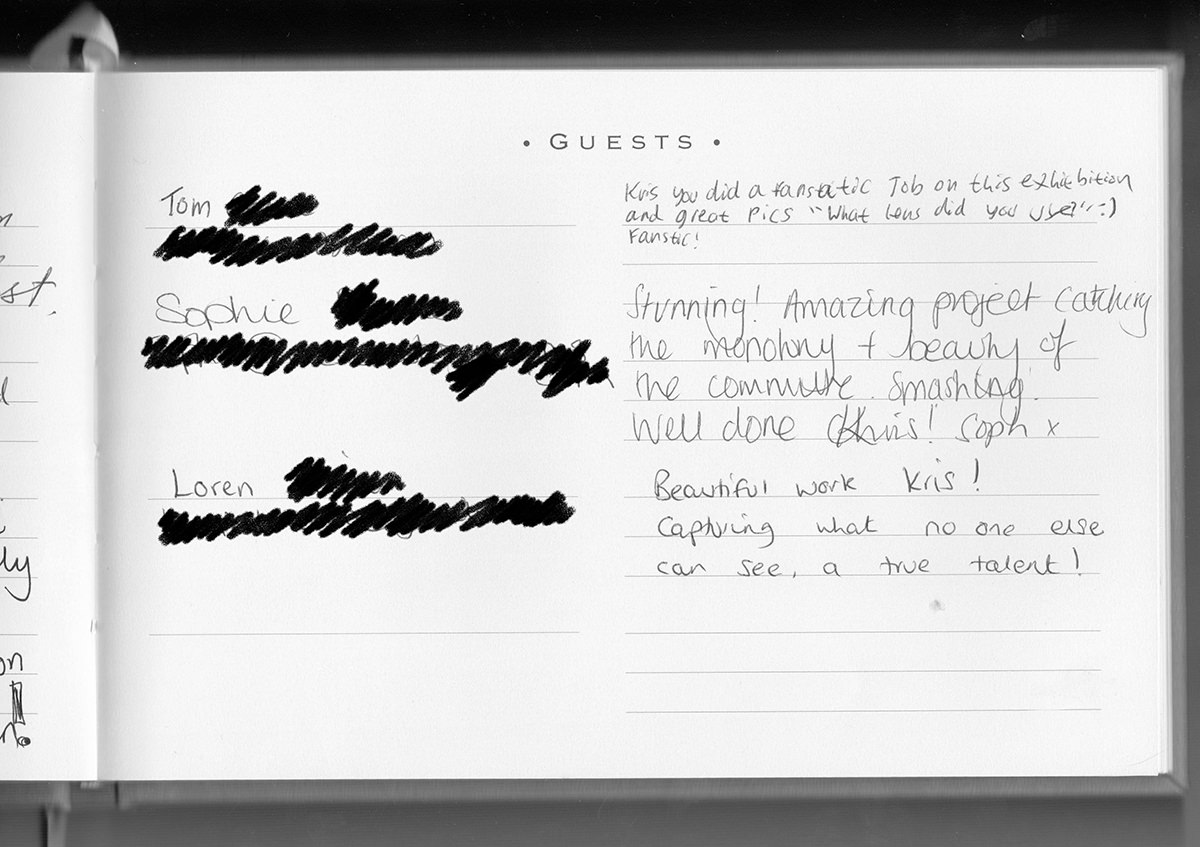 • GUESTS •
Tom
Kris you did a fanstatic Job on this exhibition
and great Pics "What Lens did you use?" :)
Fanstic!
Sophie
Stunning! Amazing project Catching
the monotony + beauty of
the commute. Smashing!
Well done Khris! Soph x
Loren
Beautiful work Kris!
Capturing what no one else
can see, a true talent!
st.
ly
on